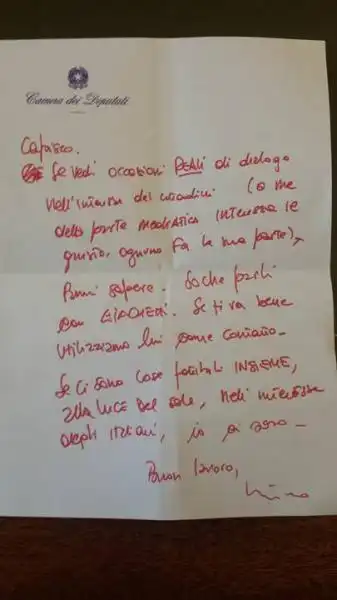 Camera dei Deputati
Capisco.
Se vedi occasioni REALI di dialogo
nell'interesse dei cittadini (a me
della parte mediatica interessa il
giusto, ognuno fa la sua parte),
fammi sapere. So che parli
con GIACHETTI. Se ti va bene
utilizziamo lui come canale.
Se ci sono cose fattibili INSIEME,
alla luce del sole, nell'interesse
degli italiani, io ci sono.
Buon lavoro,